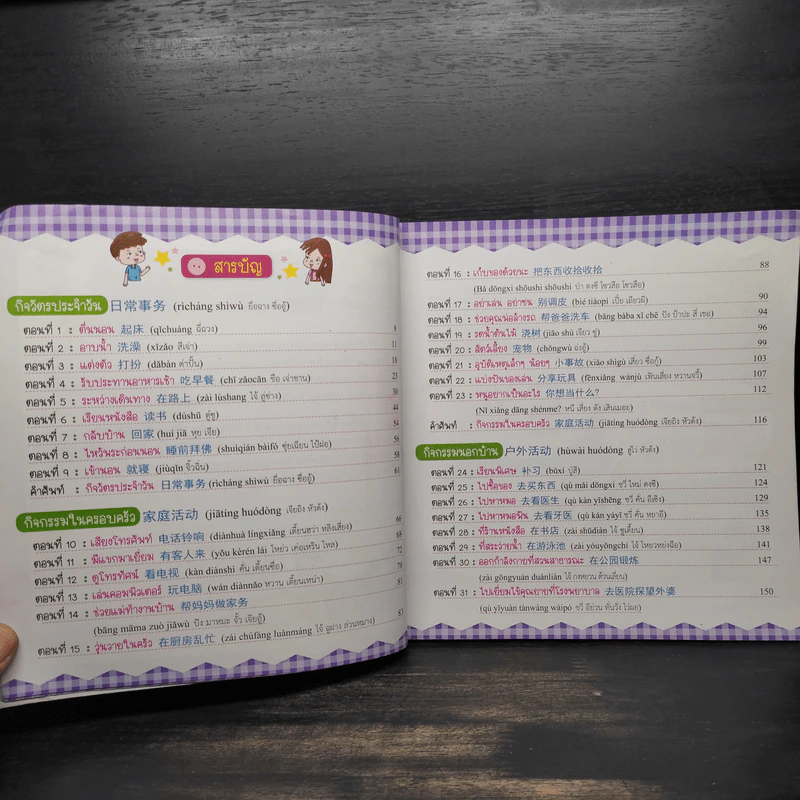 สารบัญ
กิจวัตรประจำวัน 日常事务 (rìcháng shìwù ยื่อฉาง ซื่ออู้)
ตอนที่ 1 : ตื่นนอน 起床 (qǐchuáng ฉี่ฉวง) 8
ตอนที่ 2 : อาบน้ำ 洗澡 (xǐzǎo สีเจ่า) 11
ตอนที่ 3 : แต่งตัว 打扮 (dǎbàn ต่าปั้น) 18
ตอนที่ 4 : รับประทานอาหารเช้า 吃早餐 (chī zǎocān ชือ เจ่าชาน) 23
ตอนที่ 5 : ระหว่างเดินทาง 在路上 (zài lùshang ไจ้ ลู่ซ่าง) 30
ตอนที่ 6 : เรียนหนังสือ 读书 (dúshū ตู๋ซู) 44
ตอนที่ 7 : กลับบ้าน 回家 (huí jiā หุย เจีย) 50
ตอนที่ 8 : ไหว้พระก่อนนอน 睡前拜佛 (shuìqián bàifó ซุ่ยเฉียน ไป้ฝอ) 56
ตอนที่ 9 : เข้านอน 就寝 (jiùqǐn จิ้วฉิ่น) 58
คำศัพท์ : กิจวัตรประจำวัน 日常事务 (rìcháng shìwù ยื่อฉาง ซื่ออู้) 61
กิจกรรมในครอบครัว 家庭活动 (jiātíng huódòng เจียถิง หัวต้ง)
ตอนที่ 10 : เสียงโทรศัพท์ 电话铃响 (diànhuà língxiǎng เตี้ยนฮว่า หลิงเสี่ยง) 66
ตอนที่ 11 : มีแขกมาเยี่ยม 有客人来 (yǒu kèrén lái โหย่ว เค่อเหริน ไหล) 68
ตอนที่ 12 : ดูโทรทัศน์ 看电视 (kàn diànshì คั่น เตี้ยนซื่อ) 72
ตอนที่ 13 : เล่นคอมพิวเตอร์ 玩电脑 (wán diànnǎo หวาน เตี้ยนเหน่า) 78
ตอนที่ 14 : ช่วยแม่ทำงานบ้าน 帮妈妈做家务 81
(bāng māma zuò jiāwù ปัง มาหมะ จั้ว เจียอู้)
ตอนที่ 15 : วุ่นวายในครัว 在厨房乱忙 (zài chúfáng luànmáng ไจ้ ฉูฝาง ล่วนหมาง) 83
ตอนที่ 16 : เก็บของด้วยนะ 把东西收拾收拾 88
(Bǎ dōngxi shōushi shōushi ป่า ตงซี โซวสือ โซวสือ)
ตอนที่ 17 : อย่าเล่น อย่าซน 别调皮 (bié tiáopí เปี๋ย เถียวผี) 90
ตอนที่ 18 : ช่วยคุณพ่อล้างรถ 帮爸爸洗车 (bāng bàba xǐ chē ปัง ป้าปะ สี่ เชอ) 94
ตอนที่ 19 : รดน้ำต้นไม้ 浇树 (jiāo shù เจียว ซู่) 96
ตอนที่ 20 : สัตว์เลี้ยง 宠物 (chǒngwù ฉ่งอู้) 99
ตอนที่ 21 : อุบัติเหตุเล็กๆ น้อยๆ 小事故 (xiǎo shìgù เสี่ยว ซื่อกู้) 103
ตอนที่ 22 : แบ่งปันของเล่น 分享玩具 (fēnxiǎng wánjù เฟินเสี่ยง หวานจวี้) 107
ตอนที่ 23 : หนูอยากเป็นอะไร 你想当什么? 112
(Nǐ xiǎng dāng shénme? หนี เสี่ยง ตัง เสินเมอะ)
คำศัพท์ : กิจกรรมในครอบครัว 家庭活动 (jiātíng huódòng เจียถิง หัวต้ง) 116
กิจกรรมนอกบ้าน 户外活动 (hùwài huódòng ฮู่ไว่ หัวต้ง)
ตอนที่ 24 : เรียนพิเศษ 补习 (bǔxí ปู่สี) 121
ตอนที่ 25 : ไปซื้อของ 去买东西 (qù mǎi dōngxi ชวี่ ใหม่ ตงซี) 124
ตอนที่ 26 : ไปหาหมอ 去看医生 (qù kàn yīshēng ชวี่ คั่น อีเซิง) 129
ตอนที่ 27 : ไปหาหมอฟัน 去看牙医 (qù kàn yáyī ชวี่ คั่น หยาอี) 135
ตอนที่ 28 : ที่ร้านหนังสือ 在书店 (zài shūdiàn ไจ้ ซูเตี้ยน) 138
ตอนที่ 29 : ที่สระว่ายน้ำ 在游泳池 (zài yóuyǒngchí ไจ้ โหยวหย่งฉือ) 141
ตอนที่ 30 : ออกกำลังกายที่สวนสาธารณะ 在公园锻炼 147
(zài gōngyuán duànliàn ไจ้ กงหยวน ต้วนเลี่ยน)
ตอนที่ 31 : ไปเยี่ยมไข้คุณยายที่โรงพยาบาล 去医院探望外婆 150
(qù yīyuàn tànwàng wàipó ชวี่ อีย่วน ทั่นวั่ง ไว่ผอ)